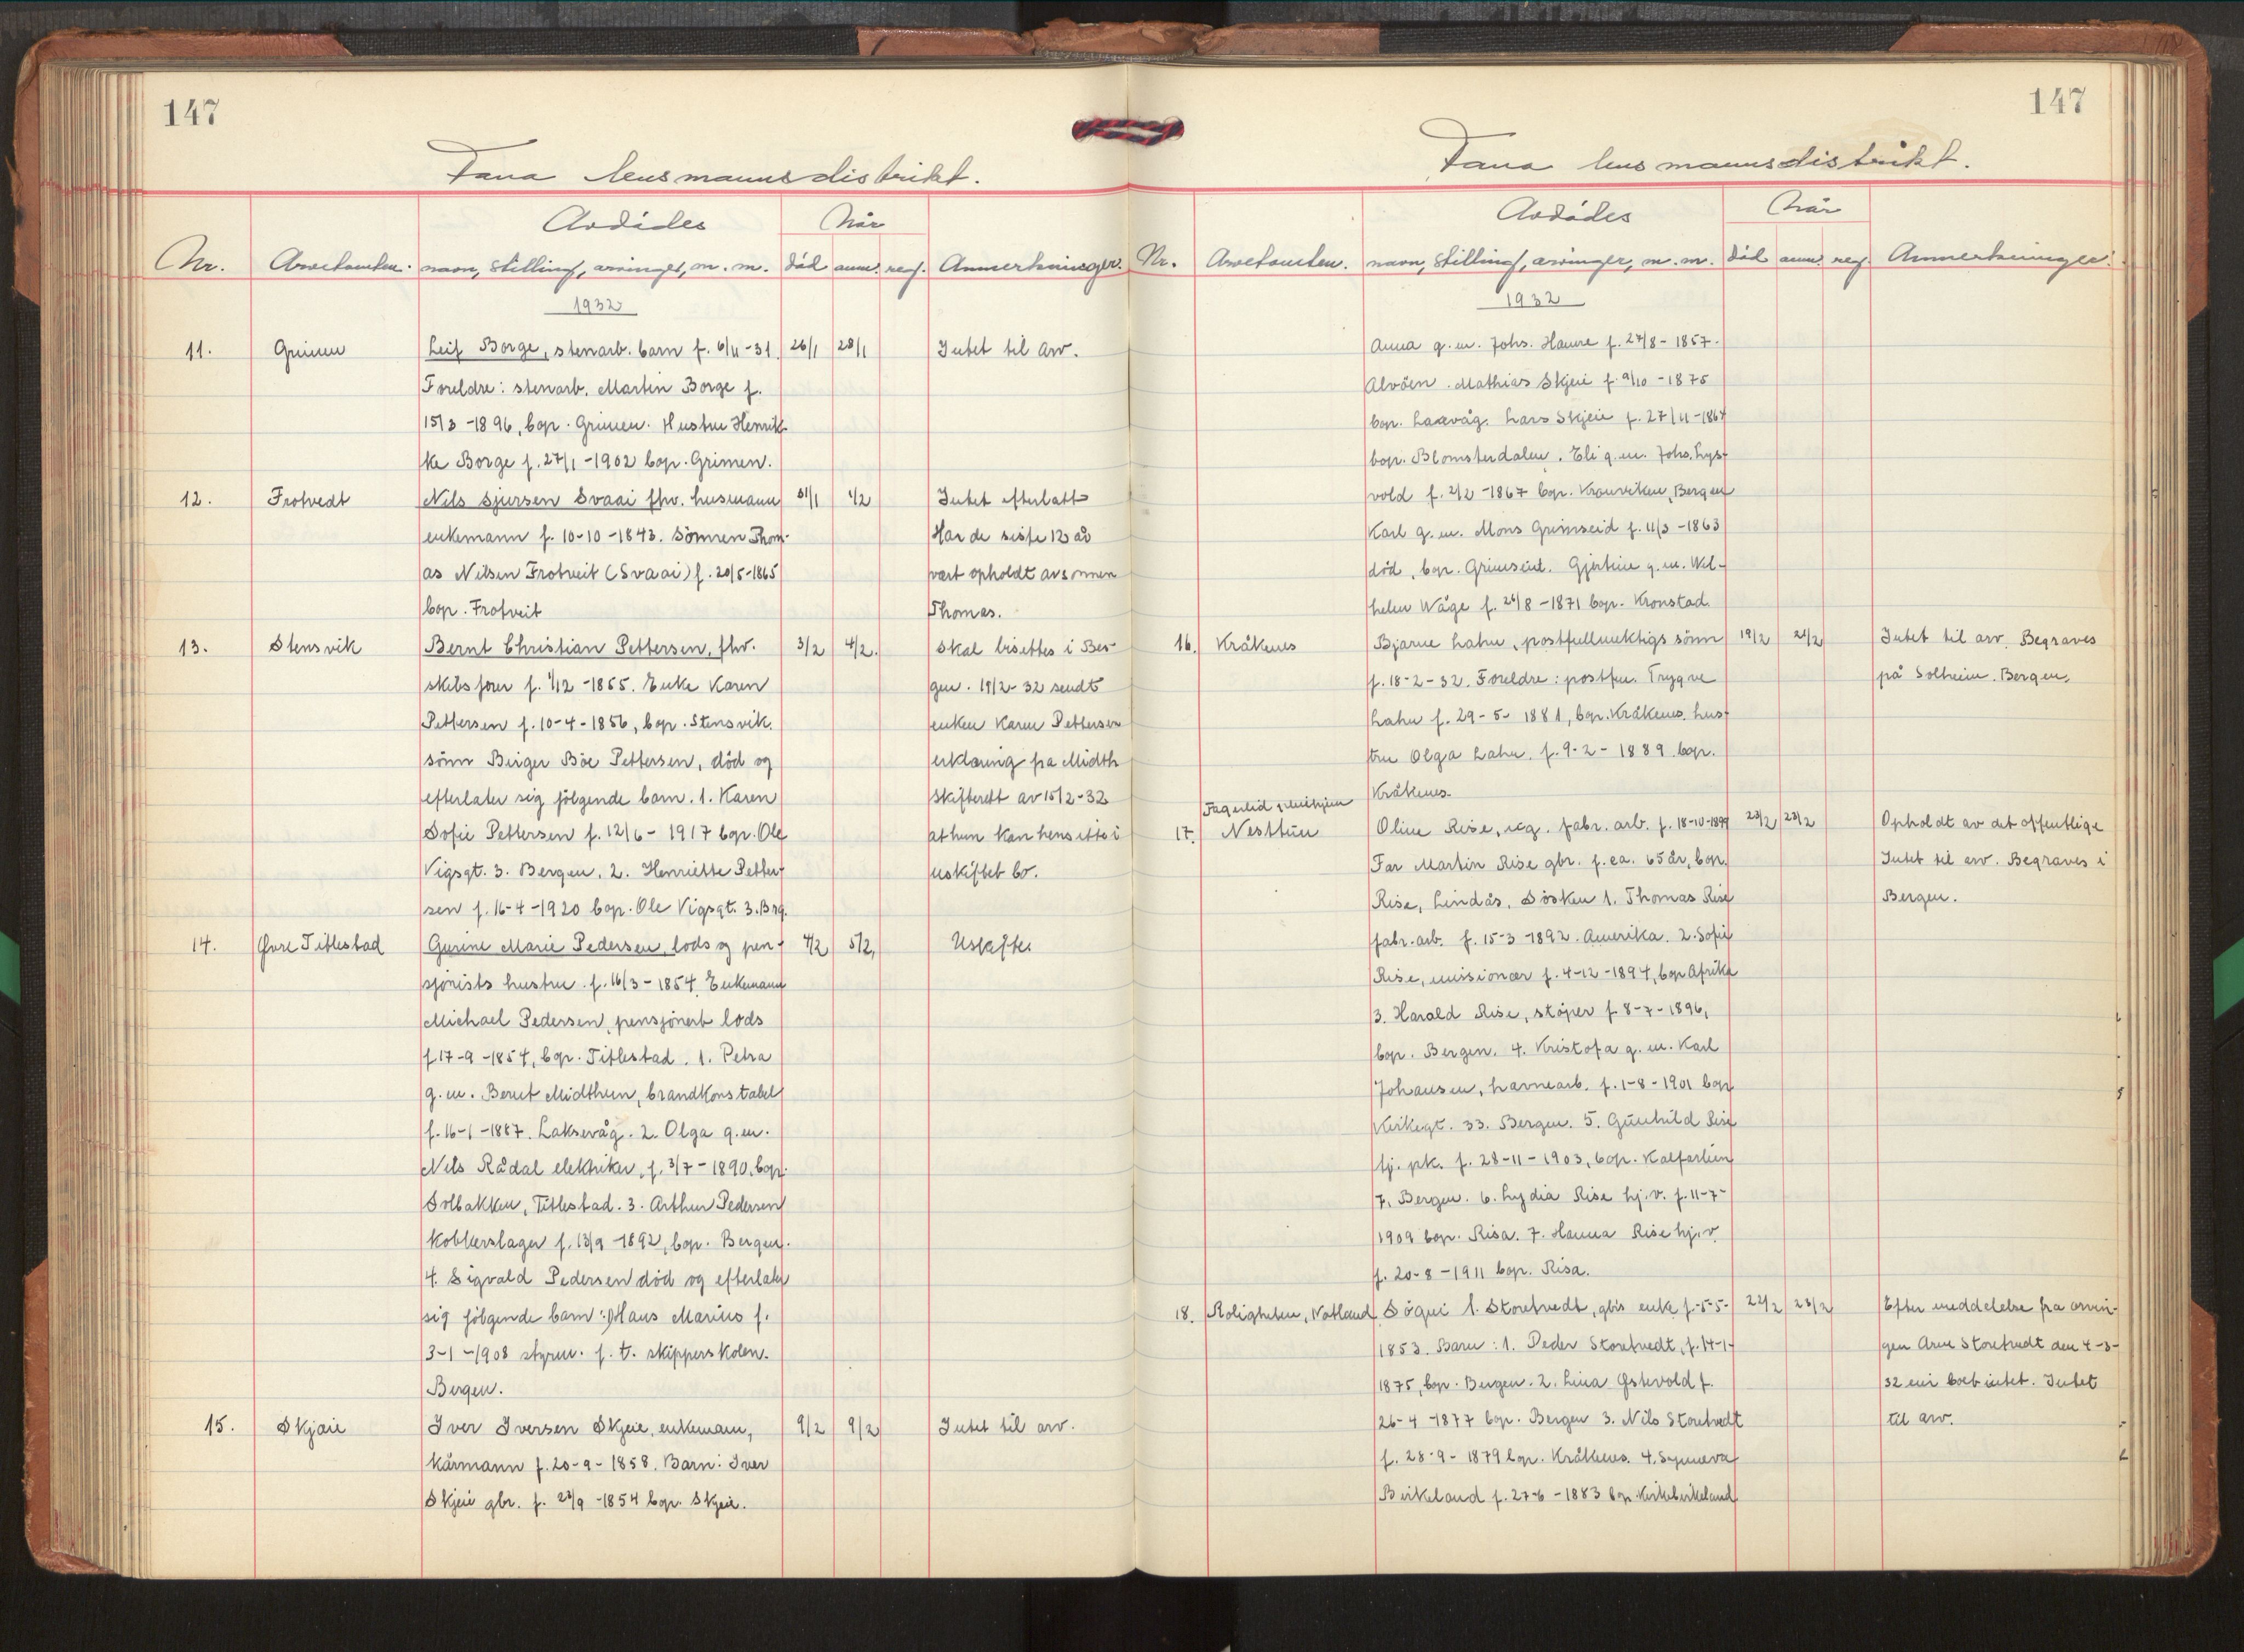 147
Fana lensmannsdistrikt.
Avdödes
Når
Nr.
Arvetomten.
navn, stilling, arvinger, m. m.
död
anm.
reg.
Anmerkninger.
1932
11. Grimen Leif Borge, stenarb. barn f. 6/11-31. 26/1 28/1 Intet til arv.
Foreldre: stenarb. Martin Borge f.
15/3 -1896, bop. Grimen. Hustru Henrik-
ke Borge f. 27/1 -1902 bop. Grimen.
12. Frotvedt Nils Sjursen Svaai fhv. husmann 31/1 1/2 Intet efterlatt
enkemann f. 10-10-1843. Sönnen Thom- Har de siste 12 år
as Nilsen Frotveit (Svaai) f. 20/5-1865 vært opholdt av sönnen
bop. Frotveit Thomas.
13. Stensvik Bernt Christian Pettersen, fhv. 3/2 4/2. Skal bisettes i Ber-
skibsförer f. 1/12 -1855. Enke Karen gen. 19/2-32 sendt
Pettersen f. 10-4-1856, bop. Stensvik. enken Karen Pettersen
sönn Birger Böe Pettersen, död og erklæring fra Midth
efterlater sig fölgende barn. 1. Karen Skifterett av 15/2-32
Sofie Pettersen f. 12/6 - 1917 bop. Ole at hun kan hensitte i
Vigsgt. 3. Bergen. 2. Henriette Petter- uskiftet bo.
sen f. 16-4-1920 bop. Ole Vigsgt. 3. Brg.
14. Övre Titlestad Gurine Marie Pedersen, lods og pen- 4/2 5/2, Uskifte.
sjonists hustru. f. 16/3 - 1854. Enkemann
Michael Pedersen, pensjonert lods
f 17-9-1854, bop. Titlestad. 1. Petra
g. m. Bernt Midthun, brandkonstabel
f. 16-1-1887. Laksevåg. 2. Olga g. m.
Nils Rådal elektriker, f. 3/7 - 1890. bop.
Solbakken, Titlestad. 3. Arthur Pedersen
kobberslager f. 13/9 -1892, bop. Bergen.
4. Sigvald Pedersen död og efterlater
sig fölgende barn: Hans Marius f.
3-1-1908 styrm. f. t. skipperskolen.
Bergen.
15. Skjæie Iver Iversen Skjeie, enkemann, 9/2 9/2 Intet til arv.
kårmann f. 20-9-1858. Barn: Iver
Skjeie gbr. f. 23/9 -1854 bop. Skjeie.
147
Fana lensmannsdistrikt.
Avdödes
Når
Nr.
Arvetomten.
navn, stilling, arvinger, m. m.
död
anm.
reg.
Anmerkninger.
1932
Anna g. m. Johs. Hamre f. 27/8 - 1857.
Alvöen. Mathias Skjeie f. 9/10 - 1875
bop. Laxevåg. Lars Skjeie f. 27/11-1864
bop. Blomsterdalen. Eli g. m. Johs. Lyse-
vold f. 2/2 -1867 bop. Kronviken, Bergen
Kari g. m. Mons Grimseid f. 11/3 -1863
död, bop. Grimseid. Gjertine g. m. Wil-
helm Wåge f. 26/8 -1871 bop. Kronstad.
16. Kråkenes Bjarne Hahn, postfullmektigs sönn 19/2 24/2 Intet til arv. Begraves
f. 18-2-32. Foreldre: postfm. Trygve på Solheim. Bergen.
Hahn f. 29-5-1881, bop. Kråkenes. hus-
tru Olga Hahn. f. 9-2-1889. bop.
Kråkenes.
Fagerlid pleiehjem
17. Nesttun Oline Rise, ug. fabr. arb. f. 18-10-1899 23/2 23/2 Opholdt av det offentlige
Far Martin Rise gbr. f. ca. 65 år, bop. Intet til arv. Begraves i
Rise, Lindås. Sösken 1. Thomas Rise Bergen.
fabr. arb. f. 15-3-1892. Amerika. 2. Sofie
Rise, misionær f. 4-12-1894, bop Afrika
3. Harald Rise, stöper f 8-7-1896,
bop. Bergen. 4. Kristofa g. m. Karl
Johansen, havnearb. f. 1-8-1901 bop
Kirkegt. 33. Bergen. 5. Gunhild Rise
tj. pk. f. 28-11-1903, bop. Kalfarlien
7. Bergen. 6. Lydia Rise hj. v. f. 11-7-
1909 bop. Risa. 7. Hanna Rise hj. v.
f. 20-8-1911 bop. Risa.
18. Roligheten, Natland Sögni l. Storetvedt, gbr's enke f. 5-5- 22/2 23/2 Efter meddelelse fra arvin-
1853. Barn: 1. Peder Storetvedt, f. 14-1- gen Arne Storetvedt den 4-3-
1875, bop. Bergen. 2. Lina Östevold f. 32 eier boet intet. Intet
26-4-1877 bop. Bergen 3. Nils Storetvedt til arv.
f. 28-9-1879 bop. Kråkenes. 4. Synneva
Birkeland f. 27-6-1883 bop Kirkebirkeland